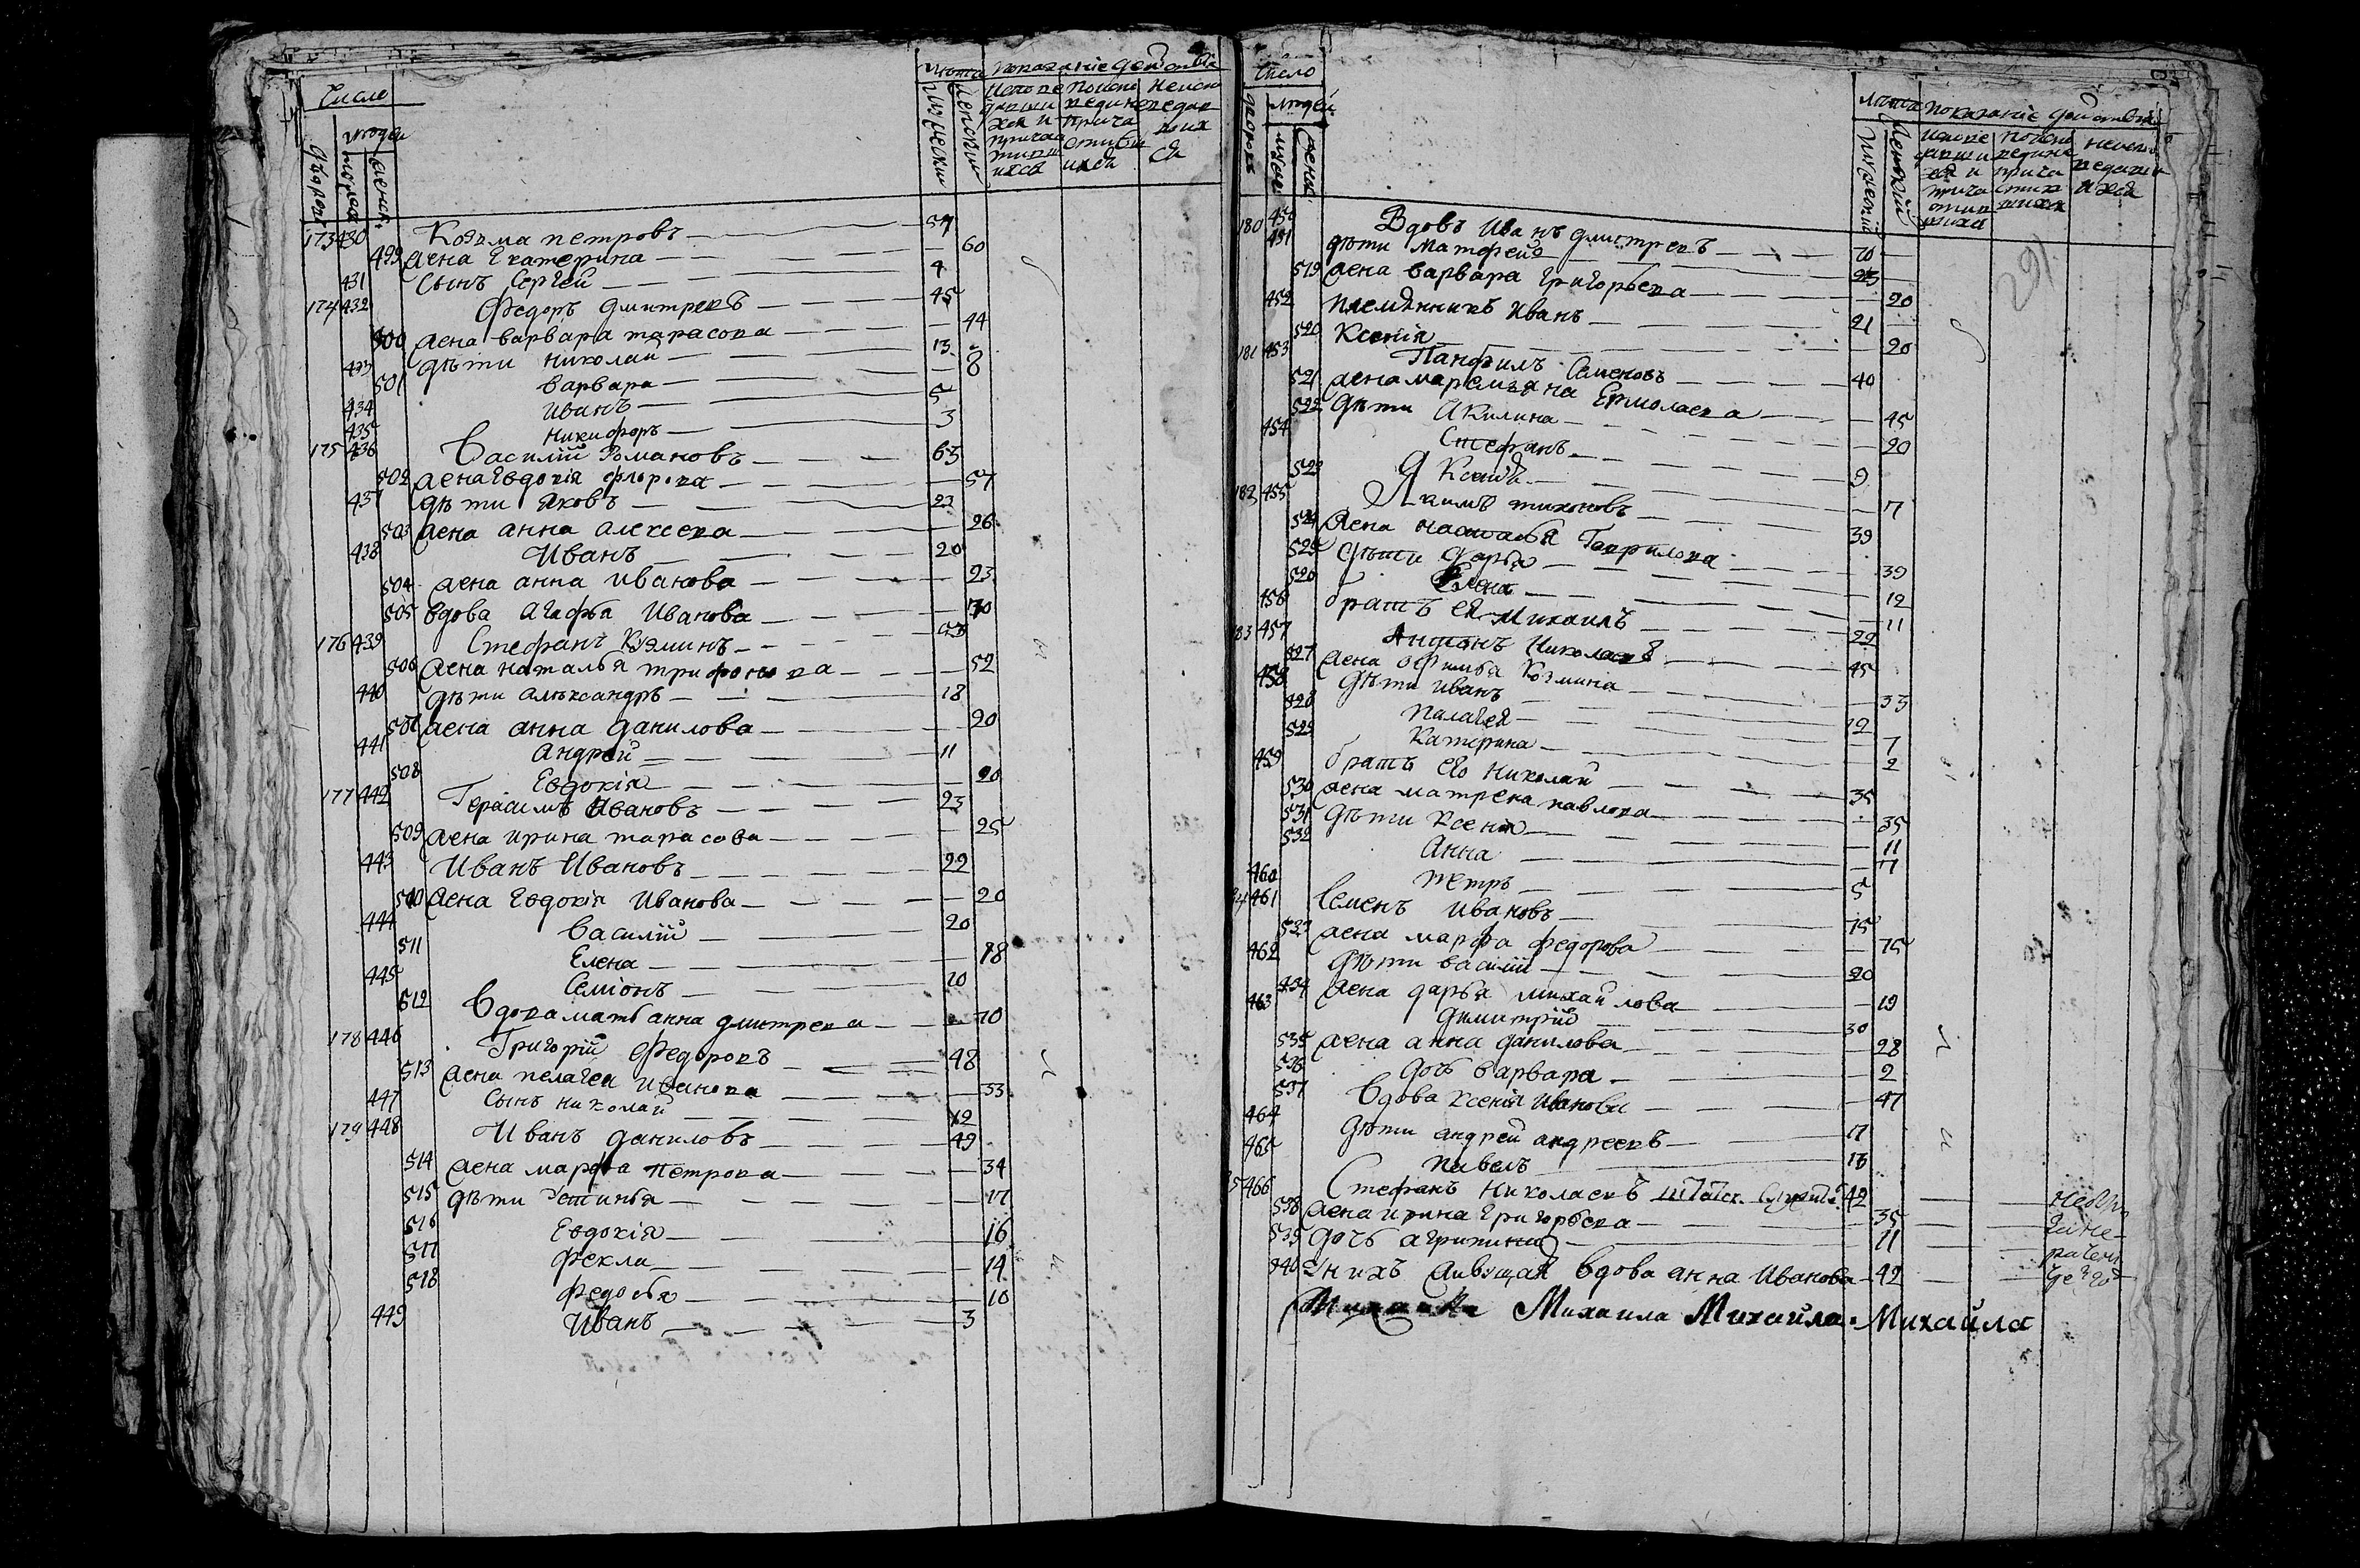 Число
людей
дворовъ
мужск.
женск.
лѣта показаніе действа
мужескихъ
женскихъ
173 430 Козма петровъ 57
499 жена Екатерина 60
431 Сынъ Сергей 4
174 432 Федоръ дмитревъ 45
500 жена варвара тарасова 44
433 дѣти николай 13
501 варвара 8
434 иванъ 5
435 никифоръ 3
175 436 Василій Романовъ 63
502 жена Евдокія флорова 57
437 дѣти яковъ 23
503 жена анна алексева 26
438 Иванъ 20
504 жена анна иванова 23
505 вдова агафья Иванова 70
176 439 Стефанъ Кузминъ 53
506 жена наталья трифонова 52
440 дѣти александръ 18
507 жена анна данилова 20
441 андрей 11
508 Евдокія 20
177 442 Герасимъ Ивановъ 23
509 жена ирина тарасова 25
443 Иванъ Ивановъ 22
510 жена Евдокія Иванова 20
444 Василій 20
511 Елена 18
445 Семіонъ 10
512 Вдова мать анна дмитрева 70
178 446 Григорій Федоровъ 48
513 жена пелагея иванова 33
447 Сынъ николай 12
179 448 Иванъ даниловъ 49
514 жена марфа петрова 34
515 дѣти Устинья 17
516 Евдокія 16
517 фекла 14
518 федосья 10
449 Иванъ 3
Число
людей
дворовъ
мужск.
женск.
лѣта показаніе действа
мужескій
женскій
291
180 450 Вдовъ Иванъ дмитревъ 70
451 дѣти Матфей 23
519 жена варвара григорьева 20
452 племянникъ иванъ 21
520 Ксенія 20
181 453 Панфилъ Семеновъ 40
521 жена маремьяна Ермолаева 45
522 дѣти Акилина 20
454 Стефанъ 9
523 Ксенія 7
182 455 Якимъ тихоновъ 39
524 жена наталья Гаврилова 39
525 дѣти дарья 12
526 Елена 11
456 братъ ея Михаилъ 22
183 457 Антонъ Николаевъ 45
527 жена офимья Козмина 33
458 дѣти иванъ 12
528 палагея 7
529 Катерина 2
459 братъ его николай 35
530 жена матрена павлова 35
531 дѣти ксенія 11
532 Анна 7
460 петръ 5
184 461 Семенъ ивановъ 75
533 жена марфа федорова 75
462 дѣти василій 20
534 жена дарья михайлова 19
463 димитрій 30
535 жена анна данилова 28
536 дочь варвара 2
537 Вдова ксенія иванова 47
464 дѣти андрей андреевъ 17
465 павелъ 13
185 466 Стефанъ николаевъ 42
538 жена ирина григорьева 35
539 дочь агрипина 11
540 У нихъ живущая вдова анна Иванова 42
Михаила Михайла Михайла